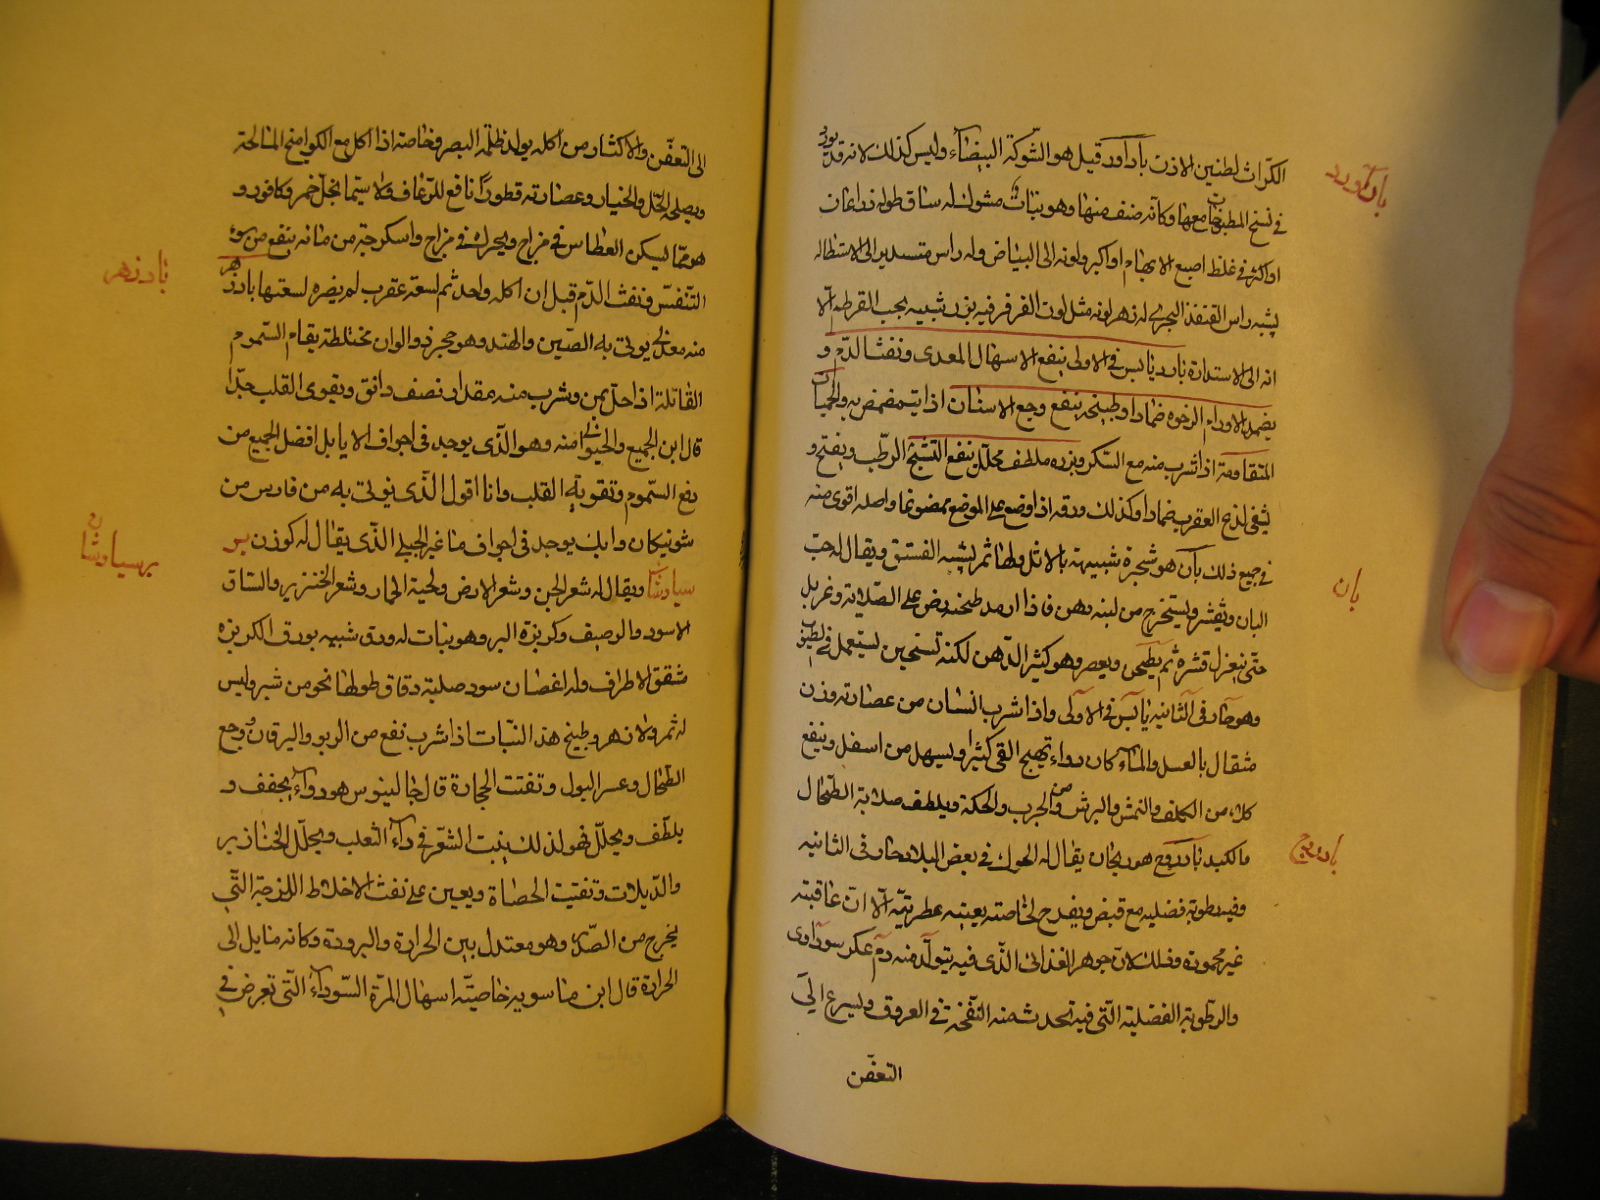 بادآورد
الكراث لطنين الاذن بادآورد قيل هو الشوكة البيضاء وليس كذلك لانه قد يورد
في نسخ المطبوخات معها وكانه صنف منها وهو نبات مشوك له ساق طوله ذراعان
او اكثر في غلظ اصبع الابهام او اكبر ولونه الى البياض وله راس مستدير الى الاستطاله
يشبه راس القنفذ البحري له زهر لونه مثل لون الفرفير فيه بزر شبيه بحب القرطم الا
انه الى الاستدارة بارد يابس في الاولى ينفع الاسهال المعدى ونفث الدم و
يضمد الاورام الرخوه ضمادا وطبيخه ينفع وجع الاسنان اذا تمضمض به والحميات
المتقادمة اذا شرب منه مع السكر وبزره ملطف محلل ينفع التشنج الرطب ويفتح و
يشفى لدغ العقرب ضمادا وكذلك ورقه اذا وضع على الموضع ممضوغا واصله اقوى منه
بان
في جميع ذلك بآن هو شجرة شبيهة بالاثل ولها ثمر يشبه الفستق ويقال له حب
البان ويقشر ويستخرج من لبنه دهن فاذا اريد طحنه رض على الصلاية وغربل
حتى ينعزل قشره ثم يطحن ويعصر وهو كثير الدهن لكنه ثخين يستعمل في الطيوب
وهو حار في الثانيه يابس في الاولى واذا شرب انسان من عصارته وزن
مثقال بالعسل والماء كان دواء يهيج القى كثيرا ويسهل من اسفل وينفع
كلاه من الكلف والنمش والبرش ومن الجرب والحكة ويلطف صلابة الطحال
بادروج
والكبد بادروج هو ريحان يقال له الحوك في بعض البلاد حار في الثانيه
وفيه رطوبة فضليه مع قبض ويفرح لخاصته يعينه عطريته الا ان عاقبته
غير محمودة وذلك لان جوهر الغذائى الذى فيه يتولد منه دم عكر سوداوى
والرطوبة الفضلية التى فيه تحدث منه النفخة في العروق ويسرع الى
التعفن
الى التعفن والاكثار من اكله يولد ظلمة البصر وخاصة اذا اكل مع الكوامخ المالحة
ويصلحه الخل والخيار وعصارته قطورا نافع للرعاف ولا سيما بخل خمر وكافور و
هو مما يسكن العطاس في مزاج ويحرك في مزاج واسكرجة من مائه ينفع من سوء
بادزهر
التنفس ونفث الدم قبل ان اكله واحد ثم لسعته عقرب لم يضره لسعتها بادزهر
منه معدنى يوتى به الصين والهند وهو حجر ذو الوان مختلطة يقام السموم
القاتلة اذا حل بمن وشرب منه مقدار نصف دانق ويقوى القلب جدا
قال ابن الجميع والحيوانى منه وهو الذى يوجد في اجواف الايايل افضل الجميع من
دفع السموم وتقوية القلب وانا اقول الذى يوتى به من فارس من
برسياوشان
شونيكان وابك يوجد في اجواف ماعز الجبلى الذى يقال له كوزن بر
سياوشان ويقال له شعر الجن وشعر الارض ولحية الحمار وشعر الخنزير والساق
الاسود والوصيف وكزبرة البر وهو نبات له ورق شبيه بورق الكزبره
مشقق الاطراف وله اغصان سود صلبة دقاق طولها نحو من شبر وليس
له ثمر ولا زهر وطبيخ هذا النبات اذا شرب نفع من الربو واليرقان ووجع
الطحال وعسر البول وتفتت الحجارة قال جالينوس هو دواء يجفف و
يلطف ويحلل فهو لذلك ينبت الشعر في دآء الثعلب ويحلل الخنازير
والدبيلات وتفتيت الحصاة ويعين على نفث الاخلاط اللزجة التى
يخرج من الصدر وهو معتدل بين الحرارة والبرودة وكانه مايل الى
الحرارة قال ابن ماسويه خاصيته اسهال المرة السوداء التى تعرض في